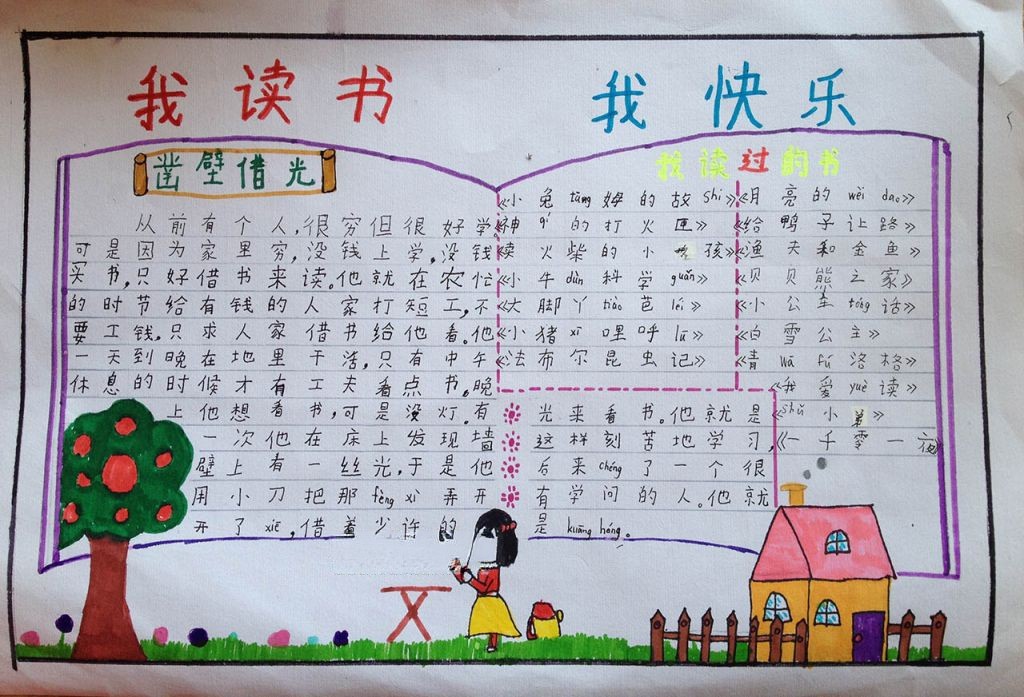 我读书
我快乐
凿壁借光
从前有个人,很穷但很好学。
可是因为家里穷,没钱上学,没钱
买书,只好借书来读。他就在农忙
的时节给有钱的人家打短工,不
要工钱,只求人家借书给他看。他
一天到晚在地里干活,只有中午
休息的时候才有工夫看点书,晚
上他想看书,可是没灯。有
一次他在床上发现墙
壁上有一丝光,于是他
用小刀把那fèng xì弄开
开了xiē,借着少许的
光来看书。他就是
这样刻苦地学习,
后来chéng了一个很
有学问的人。他就
是kuāng héng。
我读过的书
《小兔tāng姆的故shi》
《神qí的打火匣》
火柴的小孩》
《小牛dùn科学guǎn》
《大脚丫tiào芭léi》
《小猪xī哩呼lū》
《法布尔昆虫记》
《月亮的wèi dao》
《给鸭子让路》
《渔夫和金鱼》
《贝贝熊之家》
《小公主tóng话》
《白雪公主》
《青wā fú洛格》
《我爱yuè读》
《shǔ小弟》
《一千零一夜》